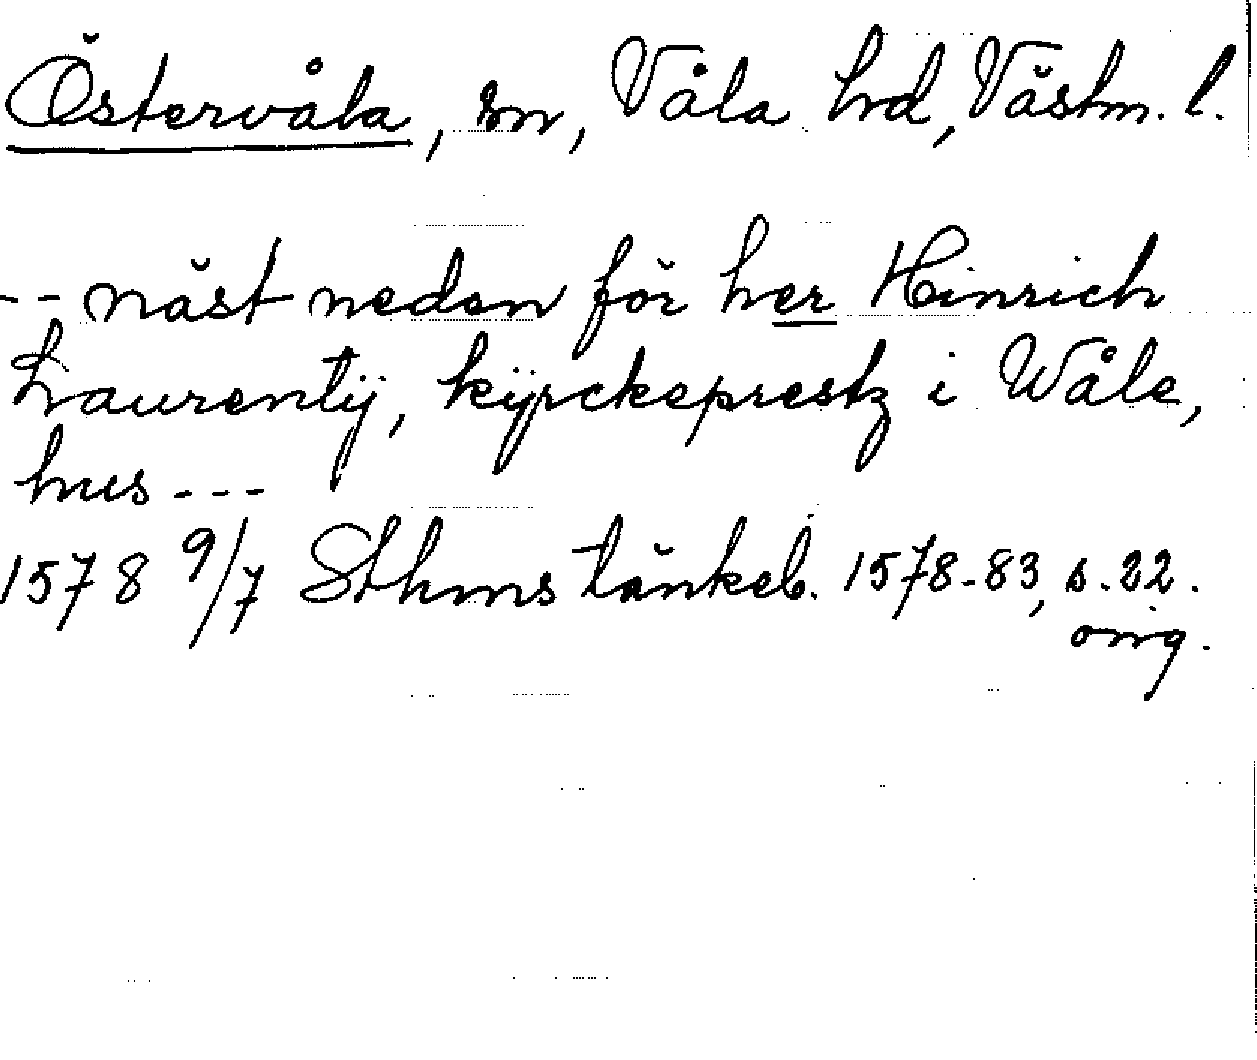 Östervåla, sn, Våla hd, Västm. l.
-- näst neden för her Hinrich
Laurentij, kÿrckeprestz i Wåle,
hus ---
1578 9/7 Sthms tänkeb. 1578-83, s. 22.
orig.